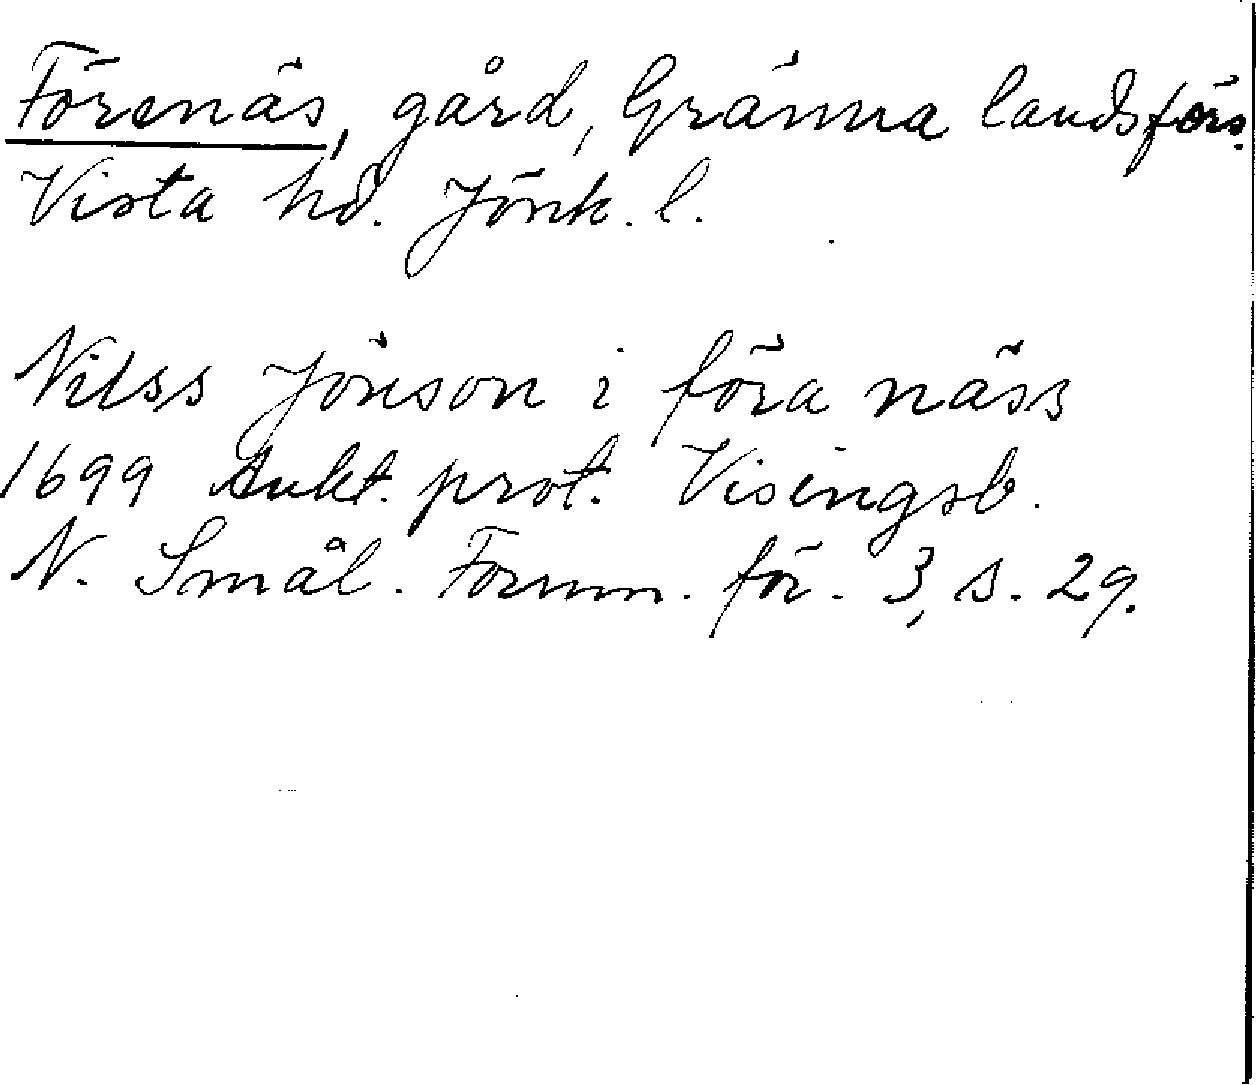 Förenäs, gård, Gränna landsförs.
Vista hd. Jönk. l.
Nilss Jönson i föra näss
1699 Aukt. prot. Visingsb.
N. Smål. Fornm. för. 3, s. 29.